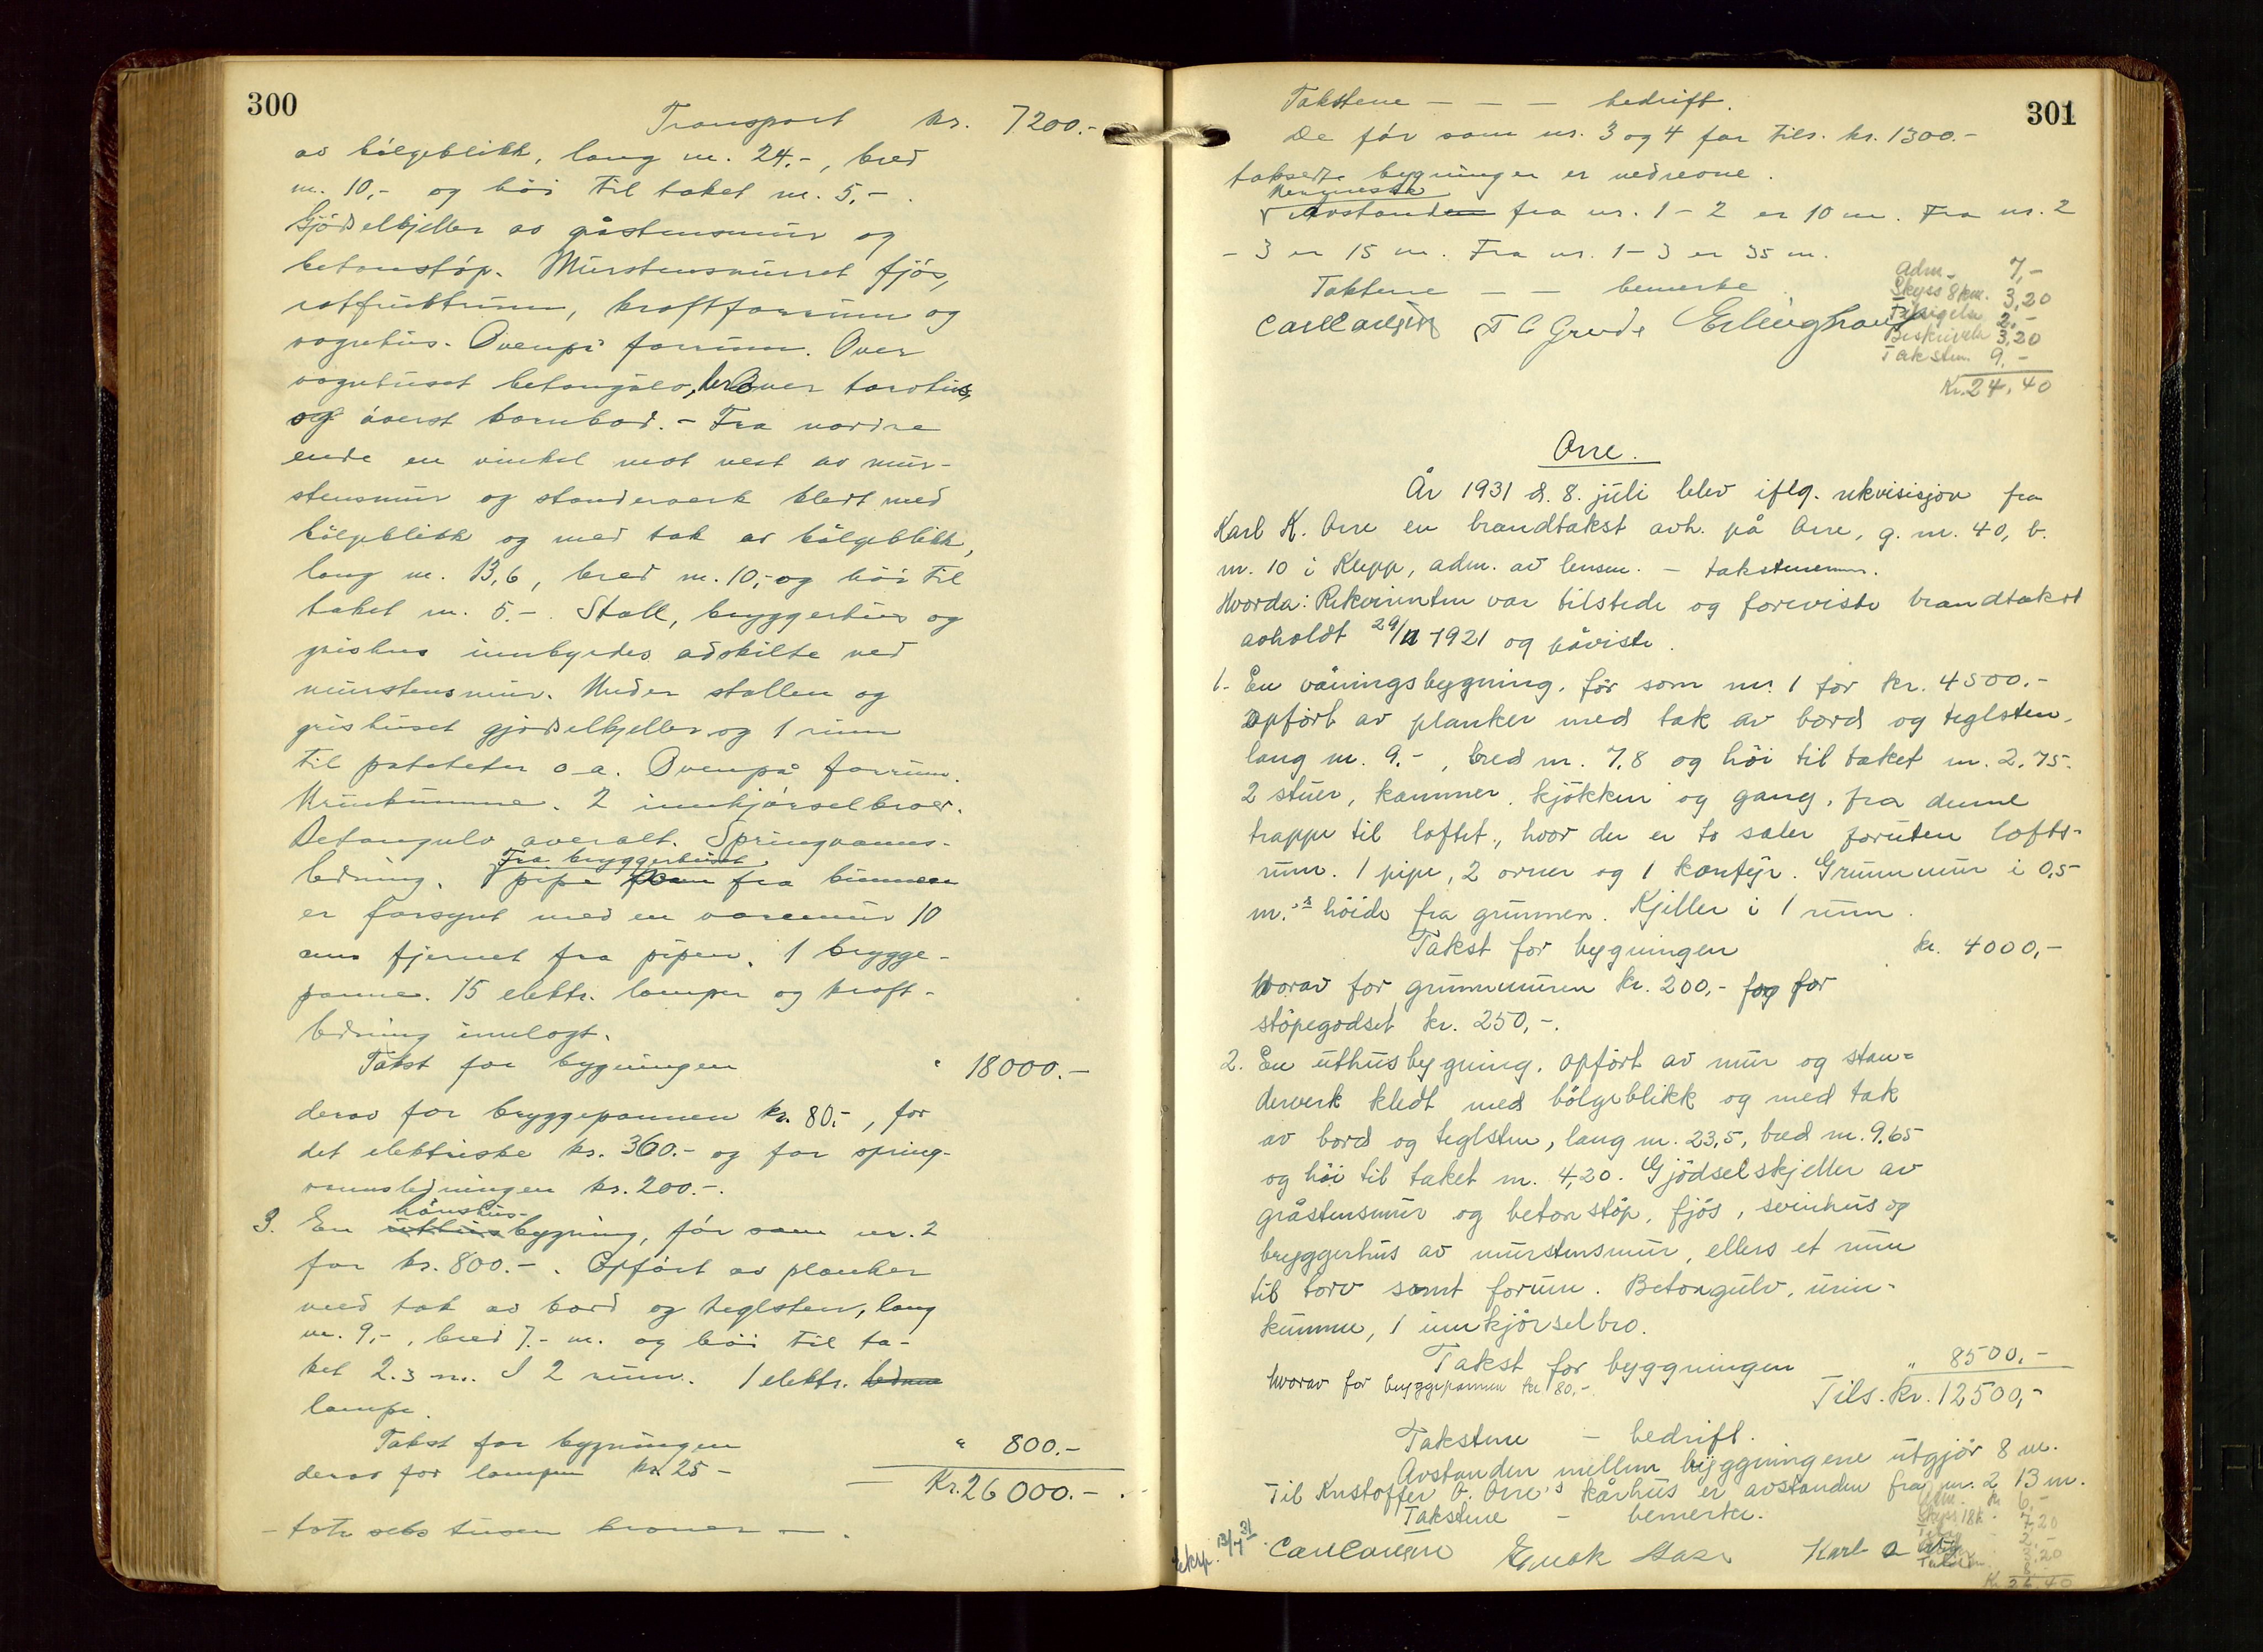 300
Transport kr. 7200.-
av bölgeblikk, lang m. 24.-, bred
m. 10,- og höi til taket m. 5,-.
Gjödselkjeller av gråstensmur og
betonstöp. Murstensmuret fjös,
rotfruktrum, kraftforrum og
vognhus. Ovenpå forrum. Over
vognhuset betongulv, herover torvhus,
og överst kornbod. - Fra nordre
ende en vinkel mot vest av mur-
stensmur og standerverk kledt med
bölgeblikk og med tak av bölgeblikk,
lang m. 13,6, bred m. 10,- og höi til
taket m. 5.-. Stall, bryggerhus og
grishus innbyrdes adskilte ved
murstensmur. Under stallen og
grishuset gjödselkjeller og 1 rum
til poteter o.a. Ovenpå forrum.
Urinkumme. 2 innkjörselbroer.
Betongulv overalt. Springvanns-
ledning. Fra bryggerhuset pipe som fra bunnen
er forsynt med en varemur 10
cm. fjernet fra pipen. 1 brygge-
panne. 15 elektr. lamper og kraft-
ledning innlagt.
Takst for bygningen " 18000.-
derav for bryggepannen kr. 80.-, for
det elektriske kr. 360.- og for spring-
vannsledningen kr. 200.-.
3. En uthus hönshus-bygning, för som nr. 2
for kr. 800.-. Opfört av planker
med tak av bord og teglsten, lang
m. 9,-, bred 7.- m. og höi til ta-
ket 2.3 m. I 2 rum. 1 elektr.
lampe.
Takst for bygningen " 800.-
derav for lampen kr. 25.-
Kr. 26000.-.
- toti seks tusen kroner -.
301
Takstene - - - bedrift.
De för som nr. 3 og 4 for tils. kr. 1300.-
takserte bygninger er nedrevne.
Avstanden fra nr. 1-2 er 10 m. Fra nr. 2
- 3 er 15 m. Fra nr. 1-3 er 35 m.
Takstene - - bemerke
Adm. 7,-
Skyss 8 km. 3,20
2,-
Beskrivelse 3,20
Takstm. 9,-
Kr. 24,40
Carl Carlsen T C Grude Erling
Orre.
År 1931 d. 8. juli blev iflg. rekvisisjon fra
Karl K. Orre en brandtakst avh. på Orre, g. nr. 40, b.
nr. 10 i Klepp, adm. av lensm. - takstmenn.
Hvorda: Rekvirenten var tilstede og foreviste brandtakst
avholdt 29/11 1921 og påviste.
1. En våningsbygning, för som nr. 1 for kr. 4500.-
opfört av planker med tak av bord og teglsten,
lang m. 9.-, bred m. 7,8 og höi til taket m. 2.75.
2 stuer, kammer, kjökken og gang, fra denne
trappe til loftet, hvor der er to saler foruten lofts-
rum. 1 pipe, 2 ovner og 1 komfyr. Grunnmur i 0,5
m.'s höide fra grunnen. Kjeller i 1 rum.
Takst for bygningen kr. 4000,-
Hvorav for grunnmuren kr. 200,- og for
stöpegodset kr. 250,-.
2. En uthusbygning, opfört av mur og stan-
derverk kledt med bölgeblikk og med tak
av bord og teglsten, lang m. 23,5, bred m. 9.65
og höi til taket m. 4,20. Gjödselskjeller av
gråstensmur og betonstöp, fjös, svinhus og
bryggerhus av murstensmur, ellers et rum
til torv samt forrum. Betongulv, urin-
kumme, 1 innkjörselbro.
Takst for byggningen " 8500,-
hvorav for bryggepannen kr 80,-. Tils. kr. 12500,-
Takstene - bedrift.
Avstanden mellem byggningene utgjör 8 m.
Til Kristoffer O. Orre's kårhus er avstanden fra nr. 2 13 m.
Takstene - bemerke.
Adm. kr 6,-
Skyss 18 k. 7,20
Kr 26,40
Eksp. 13/7 31. Carl Carlsen Karl